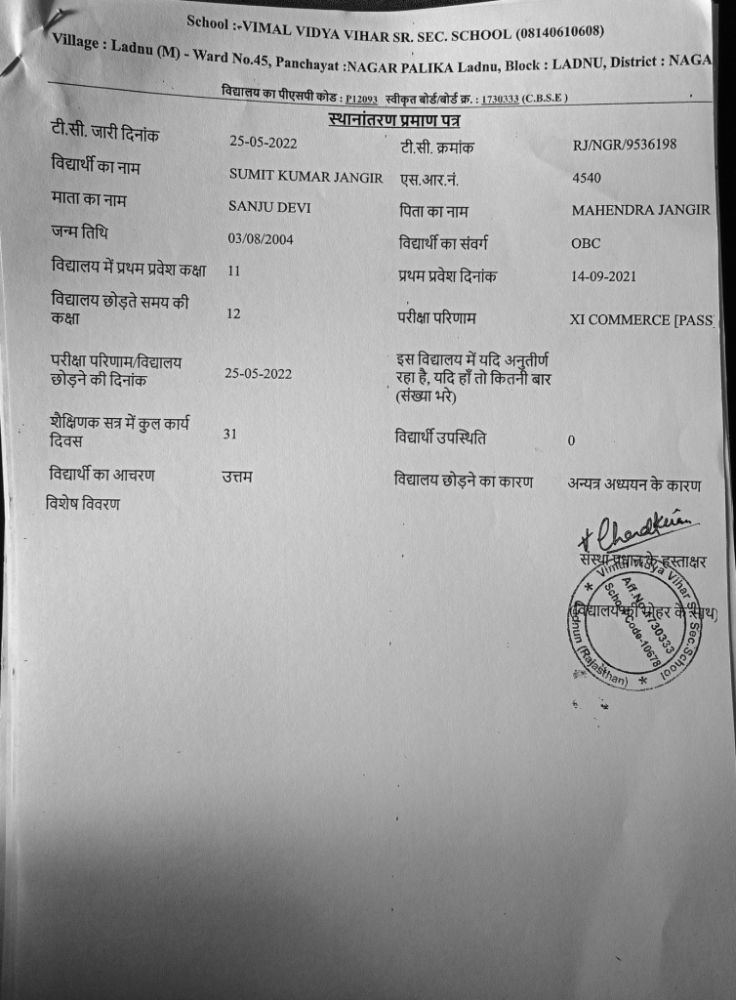 School :-VIMAL VIDYA VIHAR SR. SEC. SCHOOL (08140610608)
Village : Ladnu (M) - Ward No.45, Panchayat :NAGAR PALIKA Ladnu, Block : LADNU, District : NAGA
विद्यालय का पीएसपी कोड : P12093 स्वीकृत बोर्ड/बोर्ड क्र. : 1730333 (C.B.S.E )
स्थानांतरण प्रमाण पत्र
टी.सी. जारी दिनांक 25-05-2022 टी.सी. क्रमांक RJ/NGR/9536198
विद्यार्थी का नाम SUMIT KUMAR JANGIR एस.आर.नं. 4540
माता का नाम SANJU DEVI पिता का नाम MAHENDRA JANGIR
जन्म तिथि 03/08/2004 विद्यार्थी का संवर्ग OBC
विद्यालय में प्रथम प्रवेश कक्षा 11 प्रथम प्रवेश दिनांक 14-09-2021
विद्यालय छोड़ते समय की
कक्षा 12 परीक्षा परिणाम XI COMMERCE [PASS
परीक्षा परिणाम/विद्यालय
छोड़ने की दिनांक 25-05-2022
इस विद्यालय में यदि अनुतीर्ण
रहा है, यदि हाँ तो कितनी बार
(संख्या भरे)
शैक्षिणक सत्र में कुल कार्य
दिवस 31 विद्यार्थी उपस्थिति 0
विद्यार्थी का आचरण उत्तम विद्यालय छोड़ने का कारण अन्यत्र अध्ययन के कारण
विशेष विवरण
संस्था प्रधान के हस्ताक्षर
(विद्यालय की मोहर के साथ)
Vimal Vidya Vihar Sr. Sec. School
Aff.No.-1730333
School Code-10678
Ladnun (Rajasthan)